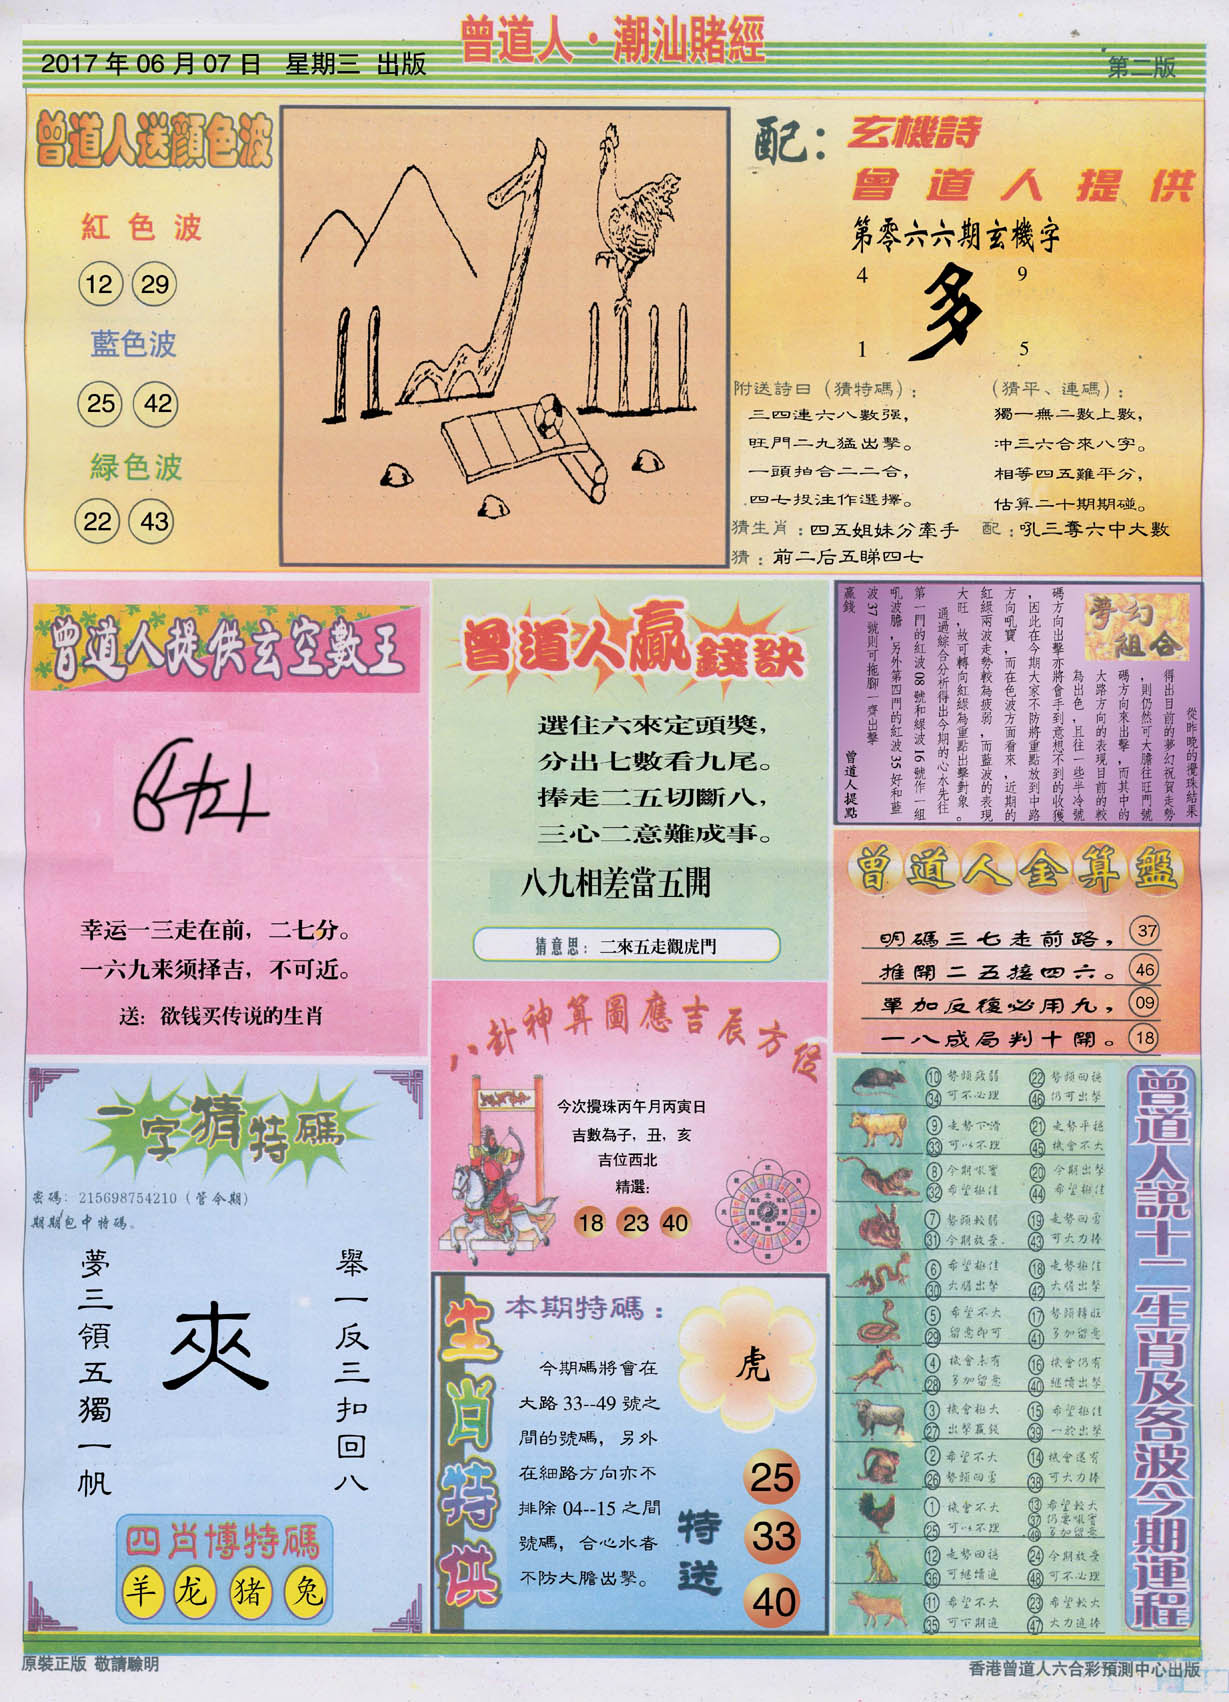 曾道人·潮汕賭經
2017年06月07日 星期三 出版
第二版
曾道人送顏色波
紅色波
12 29
藍色波
25 42
緑色波
22 43
配：玄機詩
曾道人提供
第零六六期玄機字
4 9
多
1 5
附送詩曰（猜特碼）：
三四連六八數强，
旺門二九猛出擊。
一頭拍合二二合，
四七投注作選擇。
（猜平、連碼）：
獨一無二數上數，
冲三六合來八字。
相等四五難平分，
估算二十期期碰。
猜生肖：四五姐妹分牽手
配：吼三奪六中大數
猜：前二后五睇四七
曾道人提供玄空數王
幸运一三走在前，二七分。
一六九来须择吉，不可近。
送：欲钱买传说的生肖
曾道人贏錢訣
選住六來定頭獎，
分出七數看九尾。
捧走二五切斷八，
三心二意難成事。
八九相差當五開
猜意思：二來五走觀虎門
夢幻組合
從昨晚的攪珠結果
得出目前的夢幻祝賀走勢
，則仍然可大膽往旺門號
碼方向來出擊，而其中的
大路方向的表現目前的較
為出色，且往一些半冷號
碼方向出擊亦將會手到意想不到的收獲
，因此在今期大家不防將重點放到中路
方向吼寶，而在色波方面看來，近期的
紅綠兩波走勢較為疲弱，而藍波的表現
大旺，故可轉向紅綠為重點出擊對象。
通過綜合分析得出今期的心水先往
第一門的紅波08號和緑波16號作一組
吼波膽，另外第四門的紅波35好和藍
波37號則可拖腳一齊出擊
贏錢
曾道人提點
曾道人金算盤
明碼三七走前路， 37
推開二五接四六。 46
單加反復必用九， 09
一八成局判十開。 18
八卦神算圖應吉辰方位
今次攪珠丙午月丙寅日
吉數為子，丑，亥
吉位西北
精選：
18 23 40
一字猜特碼
密碼：215698754210（管今期）
期期包中特碼。
舉一反三扣回八
夾
夢三領五獨一帆
四肖博特碼
羊 龙 猪 兔
生肖特供
本期特碼：
虎
今期碼將會在
大路33--49號之
間的號碼，另外
在細路方向亦不
排除04--15之間
號碼，合心水者
不防大膽出擊。
特送
25
33
40
曾道人説十二生肖及各波今期運程
10 勢頭疲弱 22 勢頭回穩
34 可不必理 46 仍可出擊
9 走勢下滑 21 走勢平穩
33 可以不理 45 機會不大
8 今期吼寶 20 今期出擊
32 希望極佳 44 希望極佳
7 勢頭較弱 19 走勢回勇
31 今期放棄 43 可大力捧
6 希望極佳 18 走勢極佳
30 大膽出擊 42 大膽出擊
5 希望不大 17 勢頭轉旺
29 留意即可 41 多加留意
4 機會未有 16 機會仍有
28 多加留意 40 繼續出擊
3 機會極大 15 希望極佳
27 出擊贏錢 39 一於出擊
2 希望不大 14 機會還有
26 勢頭回勇 38 可大力捧
1 機會不大 13 希望較大
25 可以不理 37 仍要吼寶
49 多加留意
12 走勢回穩 24 今期放棄
36 可繼續追 48 可不必理
11 希望不大 23 希望較大
35 可下期追 47 大力追捧
原裝正版 敬請驗明
香港曾道人六合彩預測中心出版